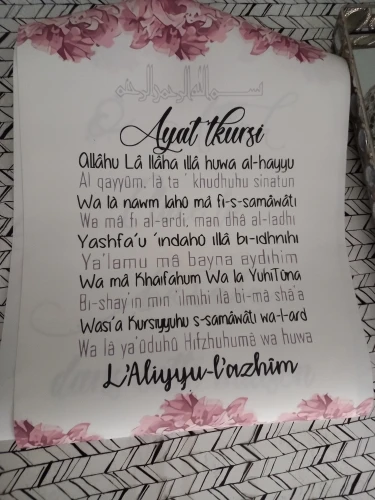 بسم الله الرحمن الرحيم
Ayat 'tkursi
Allâhu Lâ Ilâha illâ huwa al-hayyu
Al qayyûm, lâ ta ' khudhuhu sinatun
Wa lâ nawm lahû mâ fi-s-samâwâti
Wa mâ fi al-ardi, man dhâ al-ladhi
Yashfa'u 'indahû illâ bi-idhnihi
Ya'lamu mâ bayna aydihim
Wa mâ Khaifahum Wa la YuhiTûna
Bi-shay'in min 'ilmihi ilâ bi-mâ shâ'a
Wasi'a Kursiyyuhu s-samâwâti wa-l-ard
Wa lâ ya'ûduhû Hifzhuhumâ wa huwa
L'Aliyyu-l'azhîm